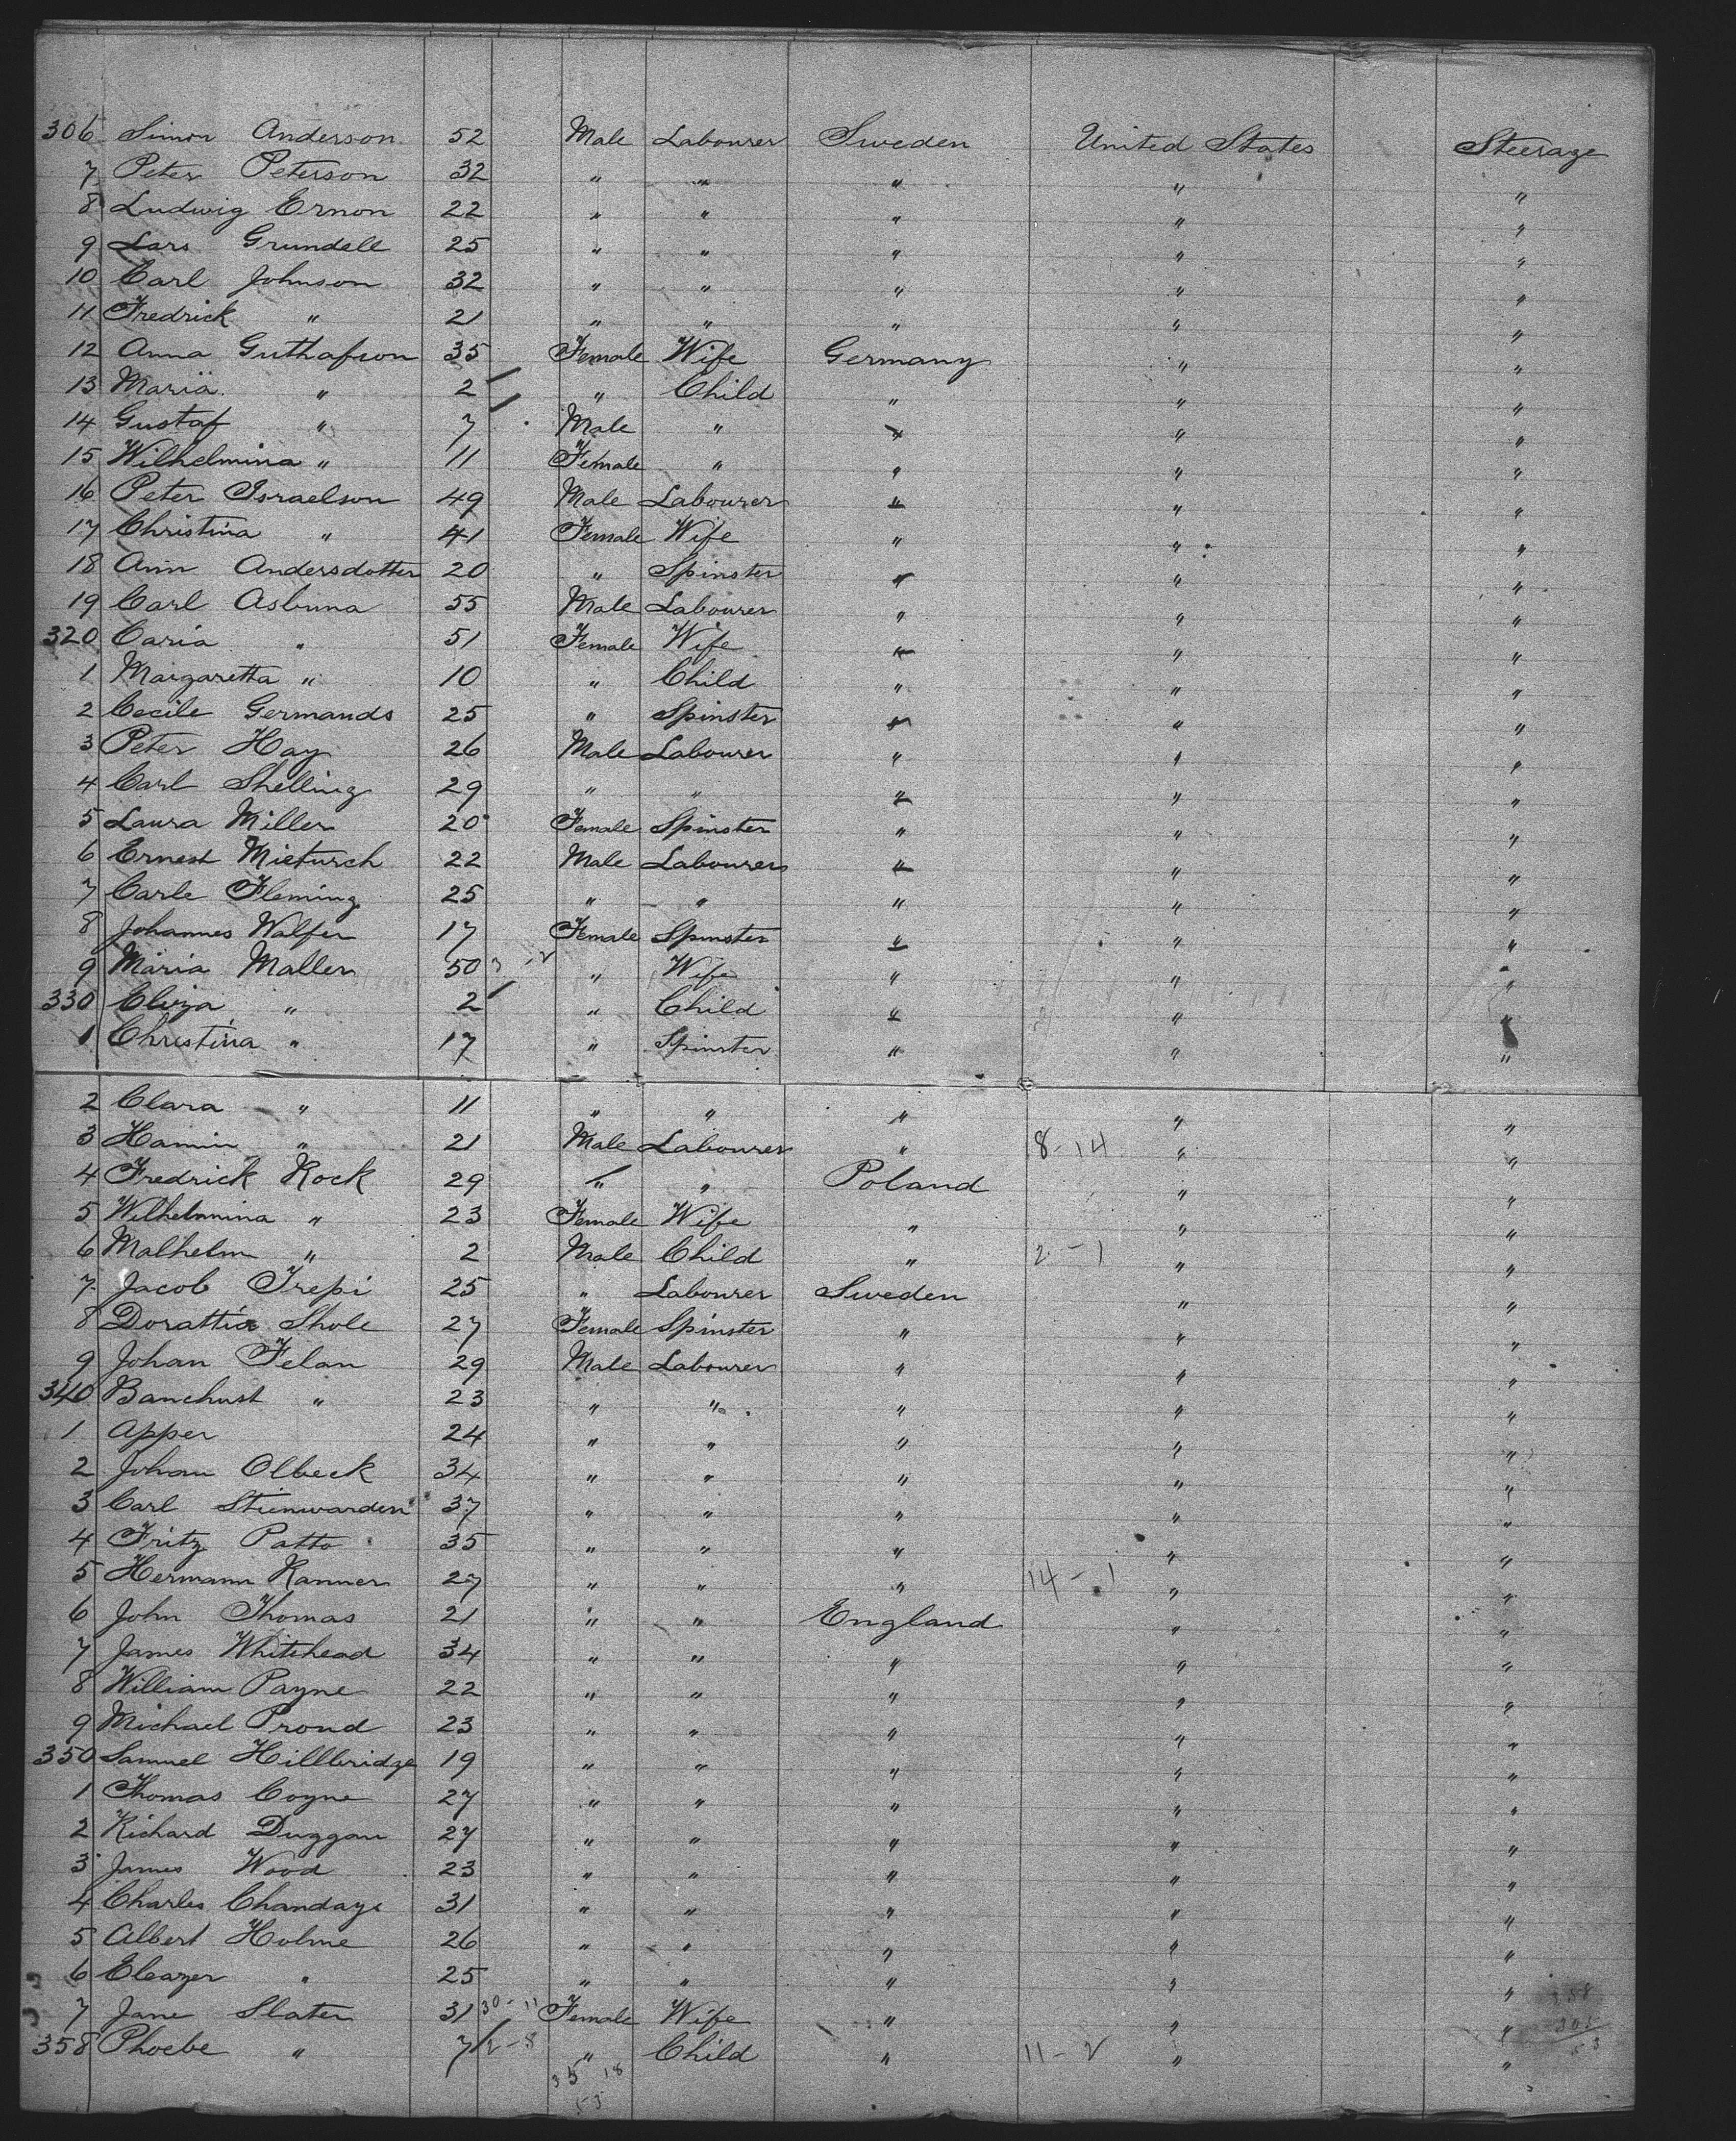 306 Simon Anderson 52 Male Labourer Sweden United States Steerage
7 Peter Peterson 32 " " " " "
8 Ludwig Ernon 22 " " " " "
9 Lars Grundell 25 " " " " "
10 Carl Johnson 32 " " " " "
11 Fredrick " 21 " " " " "
12 Anna Guthafson 35 Female Wife Germany " "
13 Maria " 2 " Child " " "
14 Gustaf " 7 Male " " " "
15 Wilhelmina " 11 Female " " " "
16 Peter Israelson 49 Male Labourer " " "
17 Christina " 41 Female Wife " " "
18 Ann Andersdotter 20 " Spinster " " "
19 Carl Asbuna 55 Male Labourer " " "
320 Caria " 51 Female Wife " " "
1 Margaretta " 10 " Child " " "
2 Cecile Germands 25 " Spinster " " "
3 Peter Hay 26 Male Labourer " " "
4 Carl Shelling 29 " " " " "
5 Laura Miller 20 Female Spinster " " "
6 Ernest Mieturch 22 Male Labourers " " "
7 Carle Fleming 25 " " " " "
8 Johannes Walfer 17 Female Spinster " " "
9 Maria Maller 50 " Wife " " "
330 Eliza " 2 " Child " " "
1 Christina " 17 " Spinster " " "
2 Clara " 11 " " " " "
3 Hamin " 21 Male Labourer " 8-14 " "
4 Fredrick Rock 29 " " Poland " "
5 Wilhelmina " 23 Female Wife " " "
6 Malhelm " 2 Male Child " 2-1 " "
7 Jacob Trepi 25 " Labourer Sweden " "
8 Dorattia Shole 27 Female Spinster " " "
9 Johan Felan 29 Male Labourer " " "
340 Banchust " 23 " " " " "
1 Apper 24 " " " " "
2 Johan Olbeck 34 " " " " "
3 Carl Stienwarden 37 " " " " "
4 Fritz Patto 35 " " " " "
5 Hermann Ranner 27 " " " 14-1 " "
6 John Thomas 21 " " England " "
7 James Whitehead 34 " " " " "
8 William Payne 22 " " " " "
9 Michael Proud 23 " " " " "
350 Samuel Hillbridge 19 " " " " "
1 Thomas Coyne 27 " " " " "
2 Richard Duggan 27 " " " " "
3 James Wood 23 " " " " "
4 Charles Chandays 31 " " " " "
5 Albert Holme 26 " " " " "
6 Eleazer " 25 " " " " "
7 Jane Slater 31 30-11 Female Wife " " "
358 Phoebe " 7 2-8 " Child " 11-2 " "
35 18
53